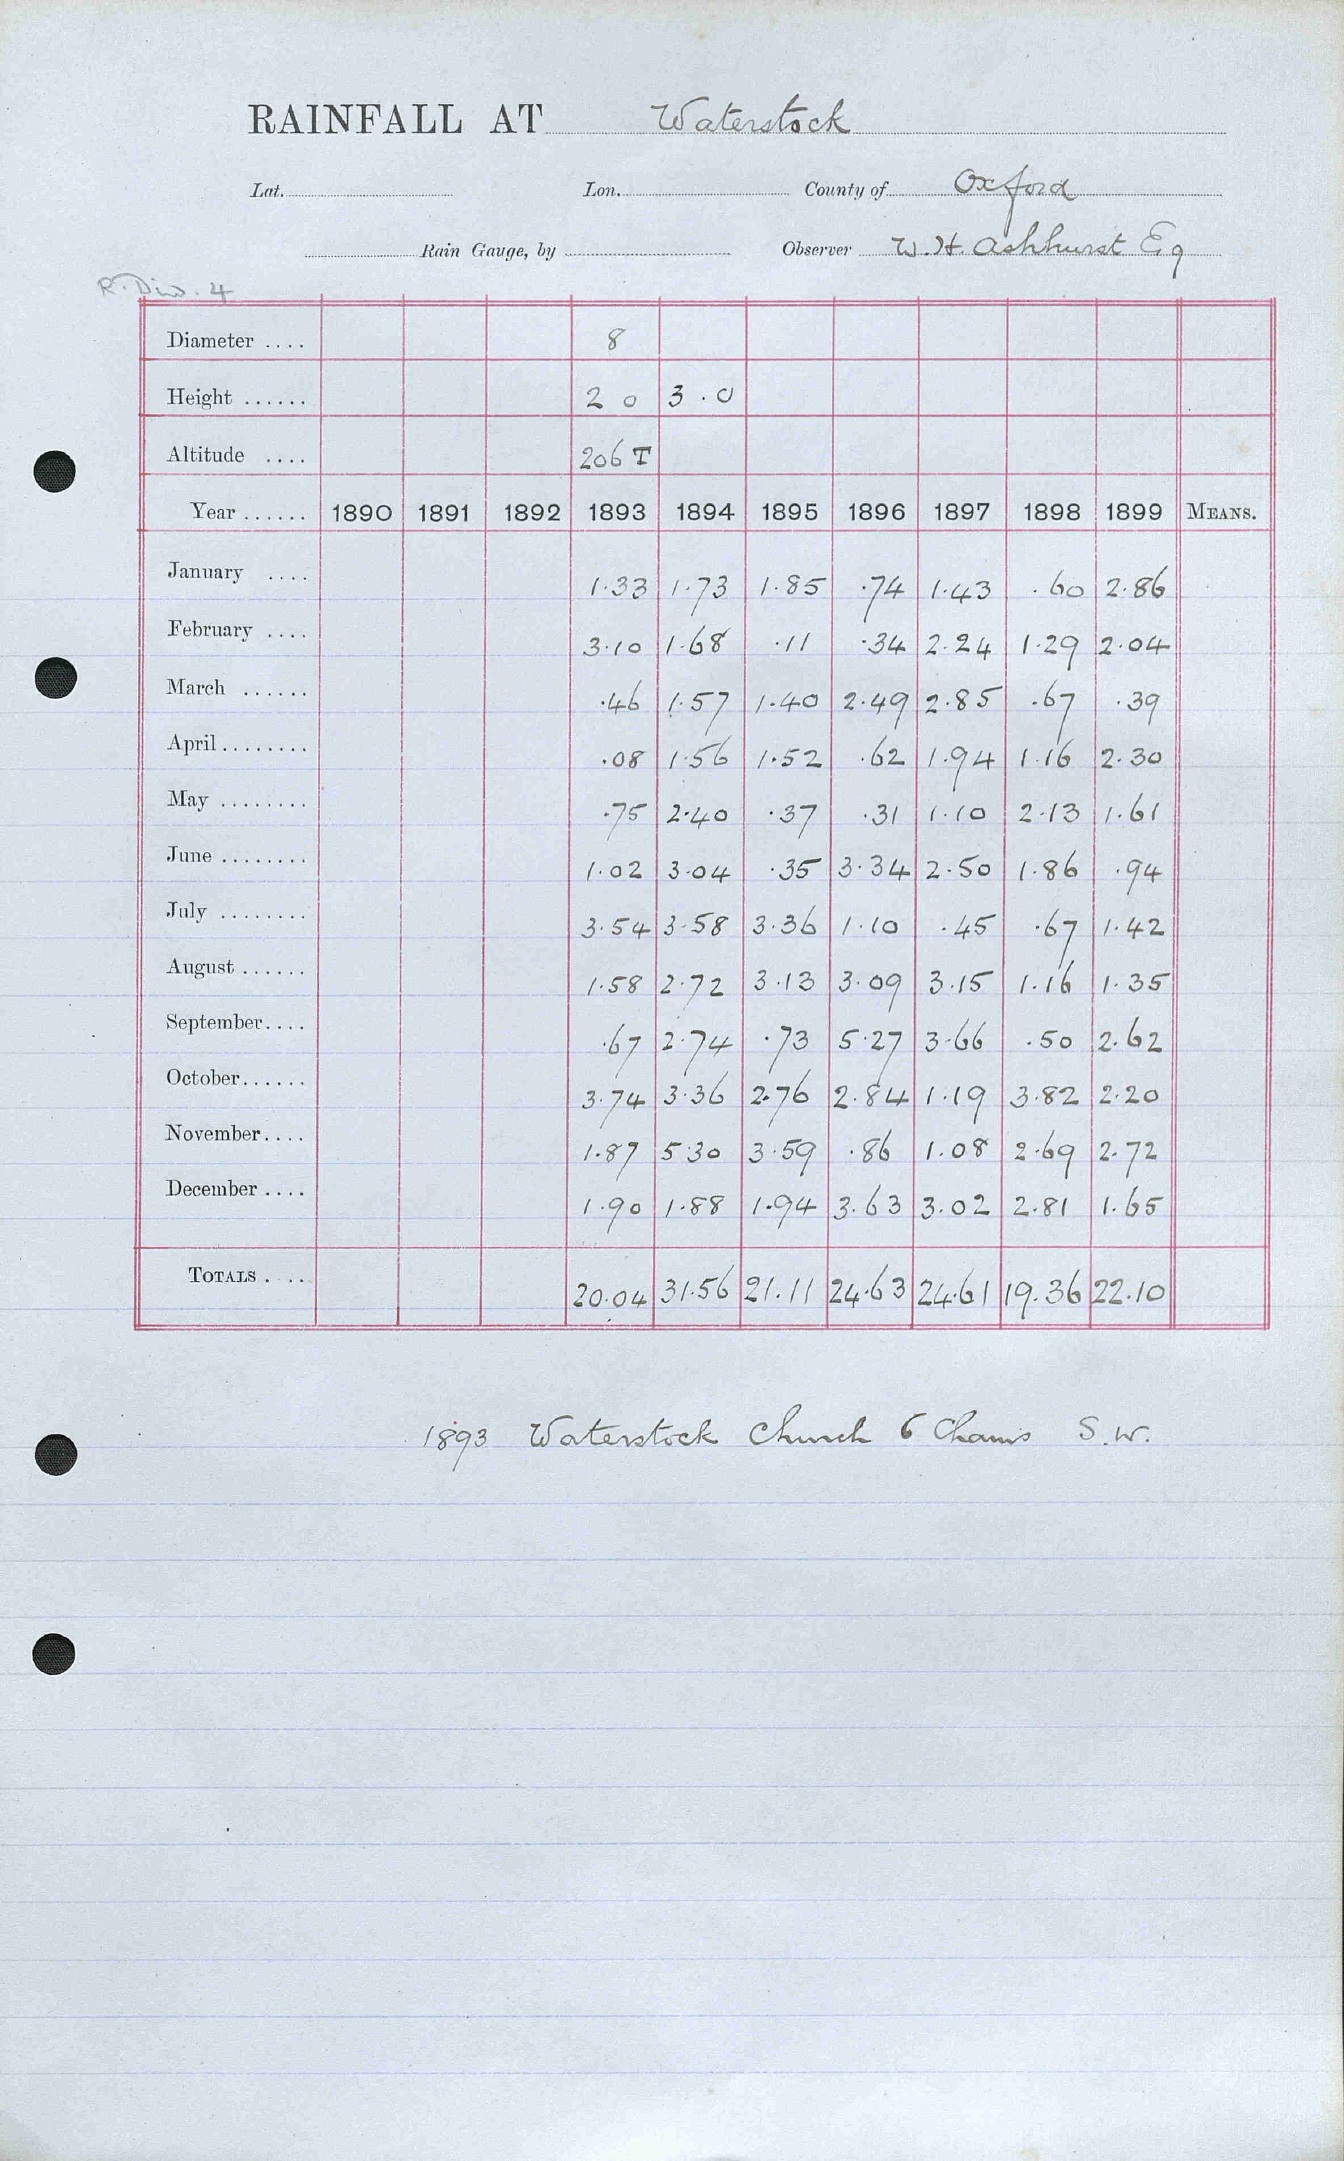 RAINFALL AT Waterstock
Lat. Lon. County of Oxford
Rain Gauge, by Observer W. H. Ashhurst Eq
R. Div. 4
Diameter .... 8
Height ...... 2 0 3.0
Altitude .... 206 T
Year ...... 1890 1891 1892 1893 1894 1895 1896 1897 1898 1899 MEANS.
January .... 1.33 1.73 1.85 .74 1.43 .60 2.86
February .... 3.10 1.68 .11 .34 2.24 1.29 2.04
March ...... .46 1.57 1.40 2.49 2.85 .67 .39
April ........ .08 1.56 1.52 .62 1.94 1.16 2.30
May ........ .75 2.40 .37 .31 1.10 2.13 1.61
June ........ 1.02 3.04 .35 3.34 2.50 1.86 .94
July ........ 3.54 3.58 3.36 1.10 .45 .67 1.42
August ...... 1.58 2.72 3.13 3.09 3.15 1.16 1.35
September.... .67 2.74 .73 5.27 3.66 .50 2.62
October...... 3.74 3.36 2.76 2.84 1.19 3.82 2.20
November.... 1.87 5.30 3.59 .86 1.08 2.69 2.72
December .... 1.90 1.88 1.94 3.63 3.02 2.81 1.65
TOTALS .... 20.04 31.56 21.11 24.63 24.61 19.36 22.10
1893 Waterstock Church 6 Chains S.W.